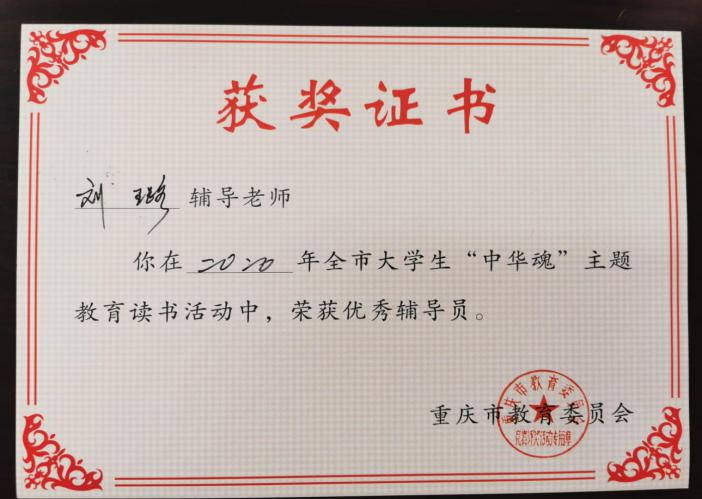 获奖证书
刘璐 辅导老师
你在 2020 年全市大学生“中华魂”主题
教育读书活动中，荣获优秀辅导员。
重庆市教育委员会
重庆市教育委员会